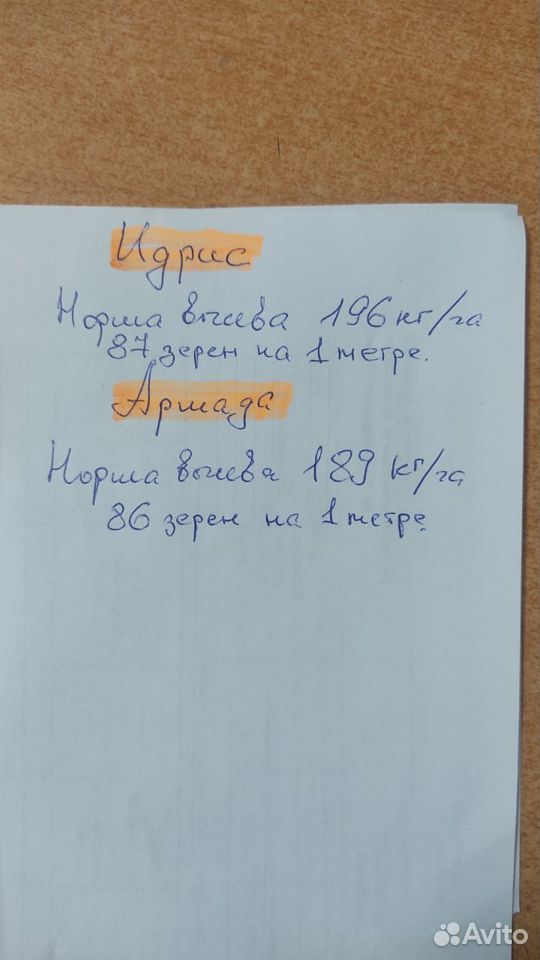 Идрис
Норма высева 196 кг/га
87 зерен на 1 метре.
Армада
Норма высева 189 кг/га
86 зерен на 1 метре
Avito